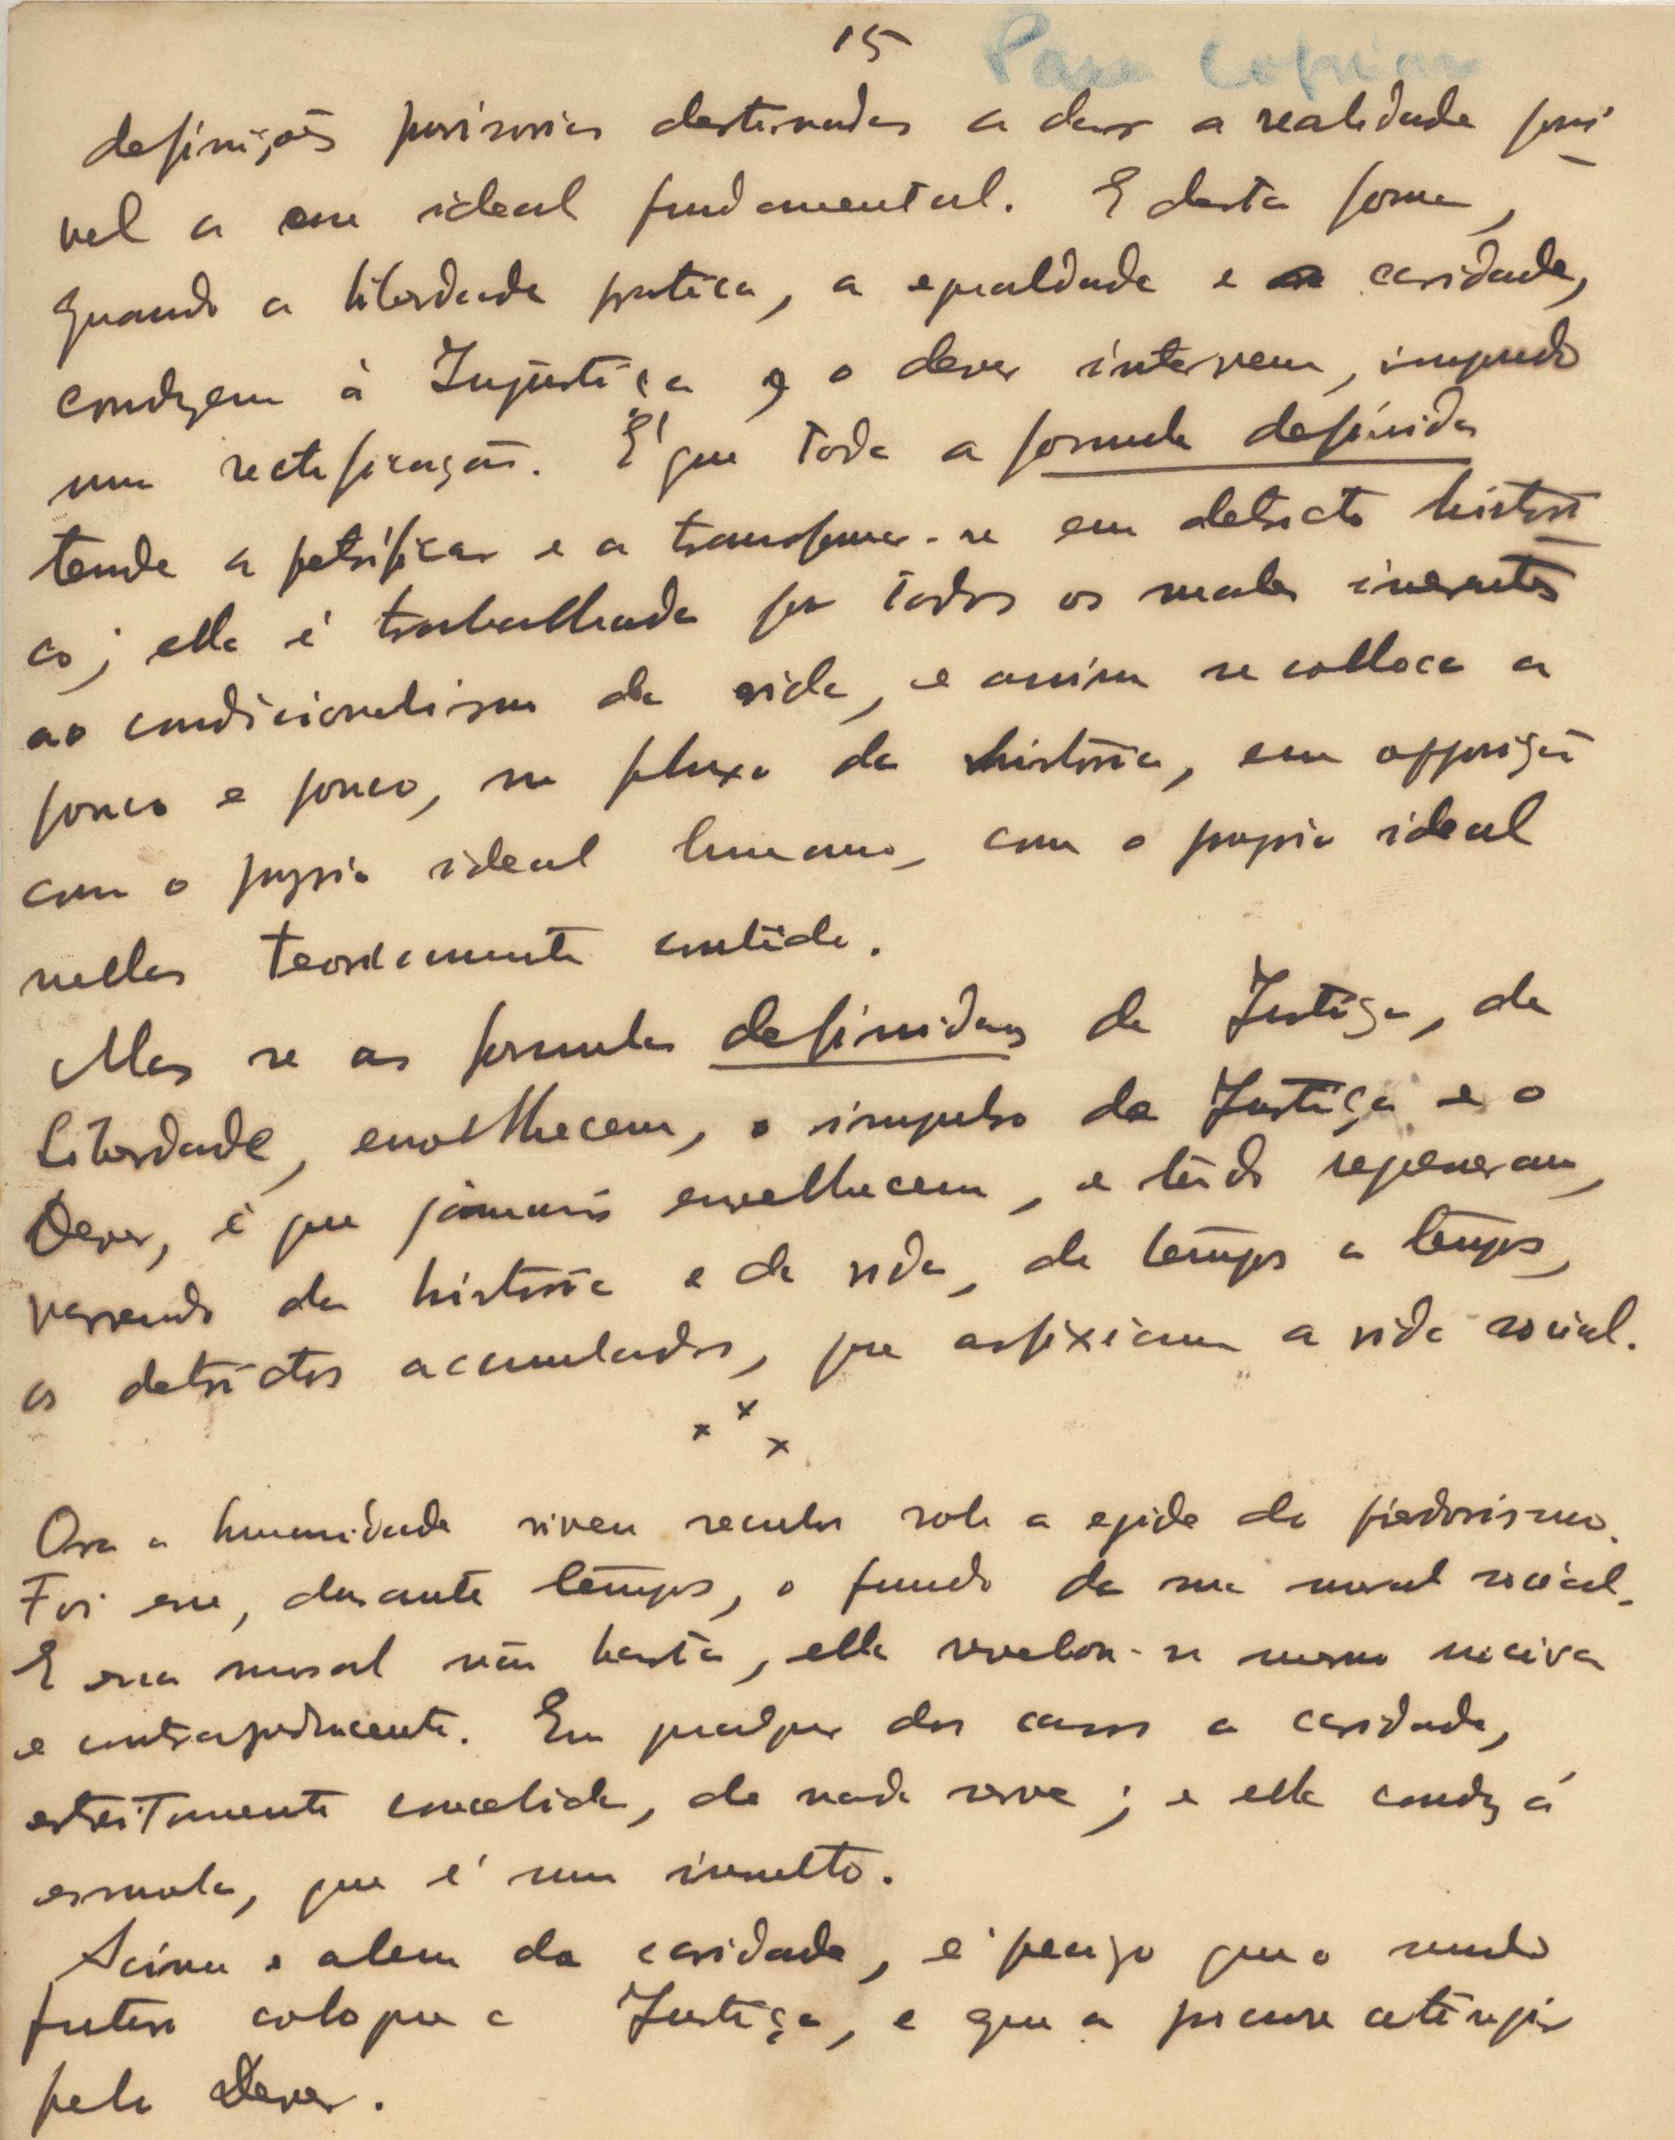 15 Para copiar
definições provisorias destinadas a dar a realidade possi
vel a esse ideal fundamental. E desta forma,
quando a liberdade pratica, a egualdade e a caridade,
conduzem á Injustiça, o dever intervem, impondo
uma rectificação. É que toda a formula definida
tende a petrificar e a transformar-se em detricto histori
co; ella é trabalhada por todos os males inerentes
ao condicionalismo da vida, e assim se colloca a
pouco e pouco, no fluxo da historia, em opposição
com o proprio ideal humano, com o proprio ideal
nellas teoricamente contido.
Mas se as formulas definidas da Justiça, da
Liberdade, envelhecem, o impulso da Justiça e o
Dever, é que jámais envelhecem, e tudo regeneram,
varrendo da historia e da vida, de tempos a tempos,
os detrictos acumulados, que asfixiam a vida social.
x x x
Ora a humanidade viveu seculos sob a egide do piedosismo.
Foi esse, durante tempos, o fundo da sua moral social.
E essa moral não basta, ella revelou-se mesmo nociva
e contraproducente. Em qualquer dos casos a caridade,
estreitamente concebida, de nada serve; e ella conduz á
esmola, que é um insulto.
Acima e alem da caridade, é preciso que o mundo
futuro coloque a Justiça, e que a procure atingir
pelo Dever.